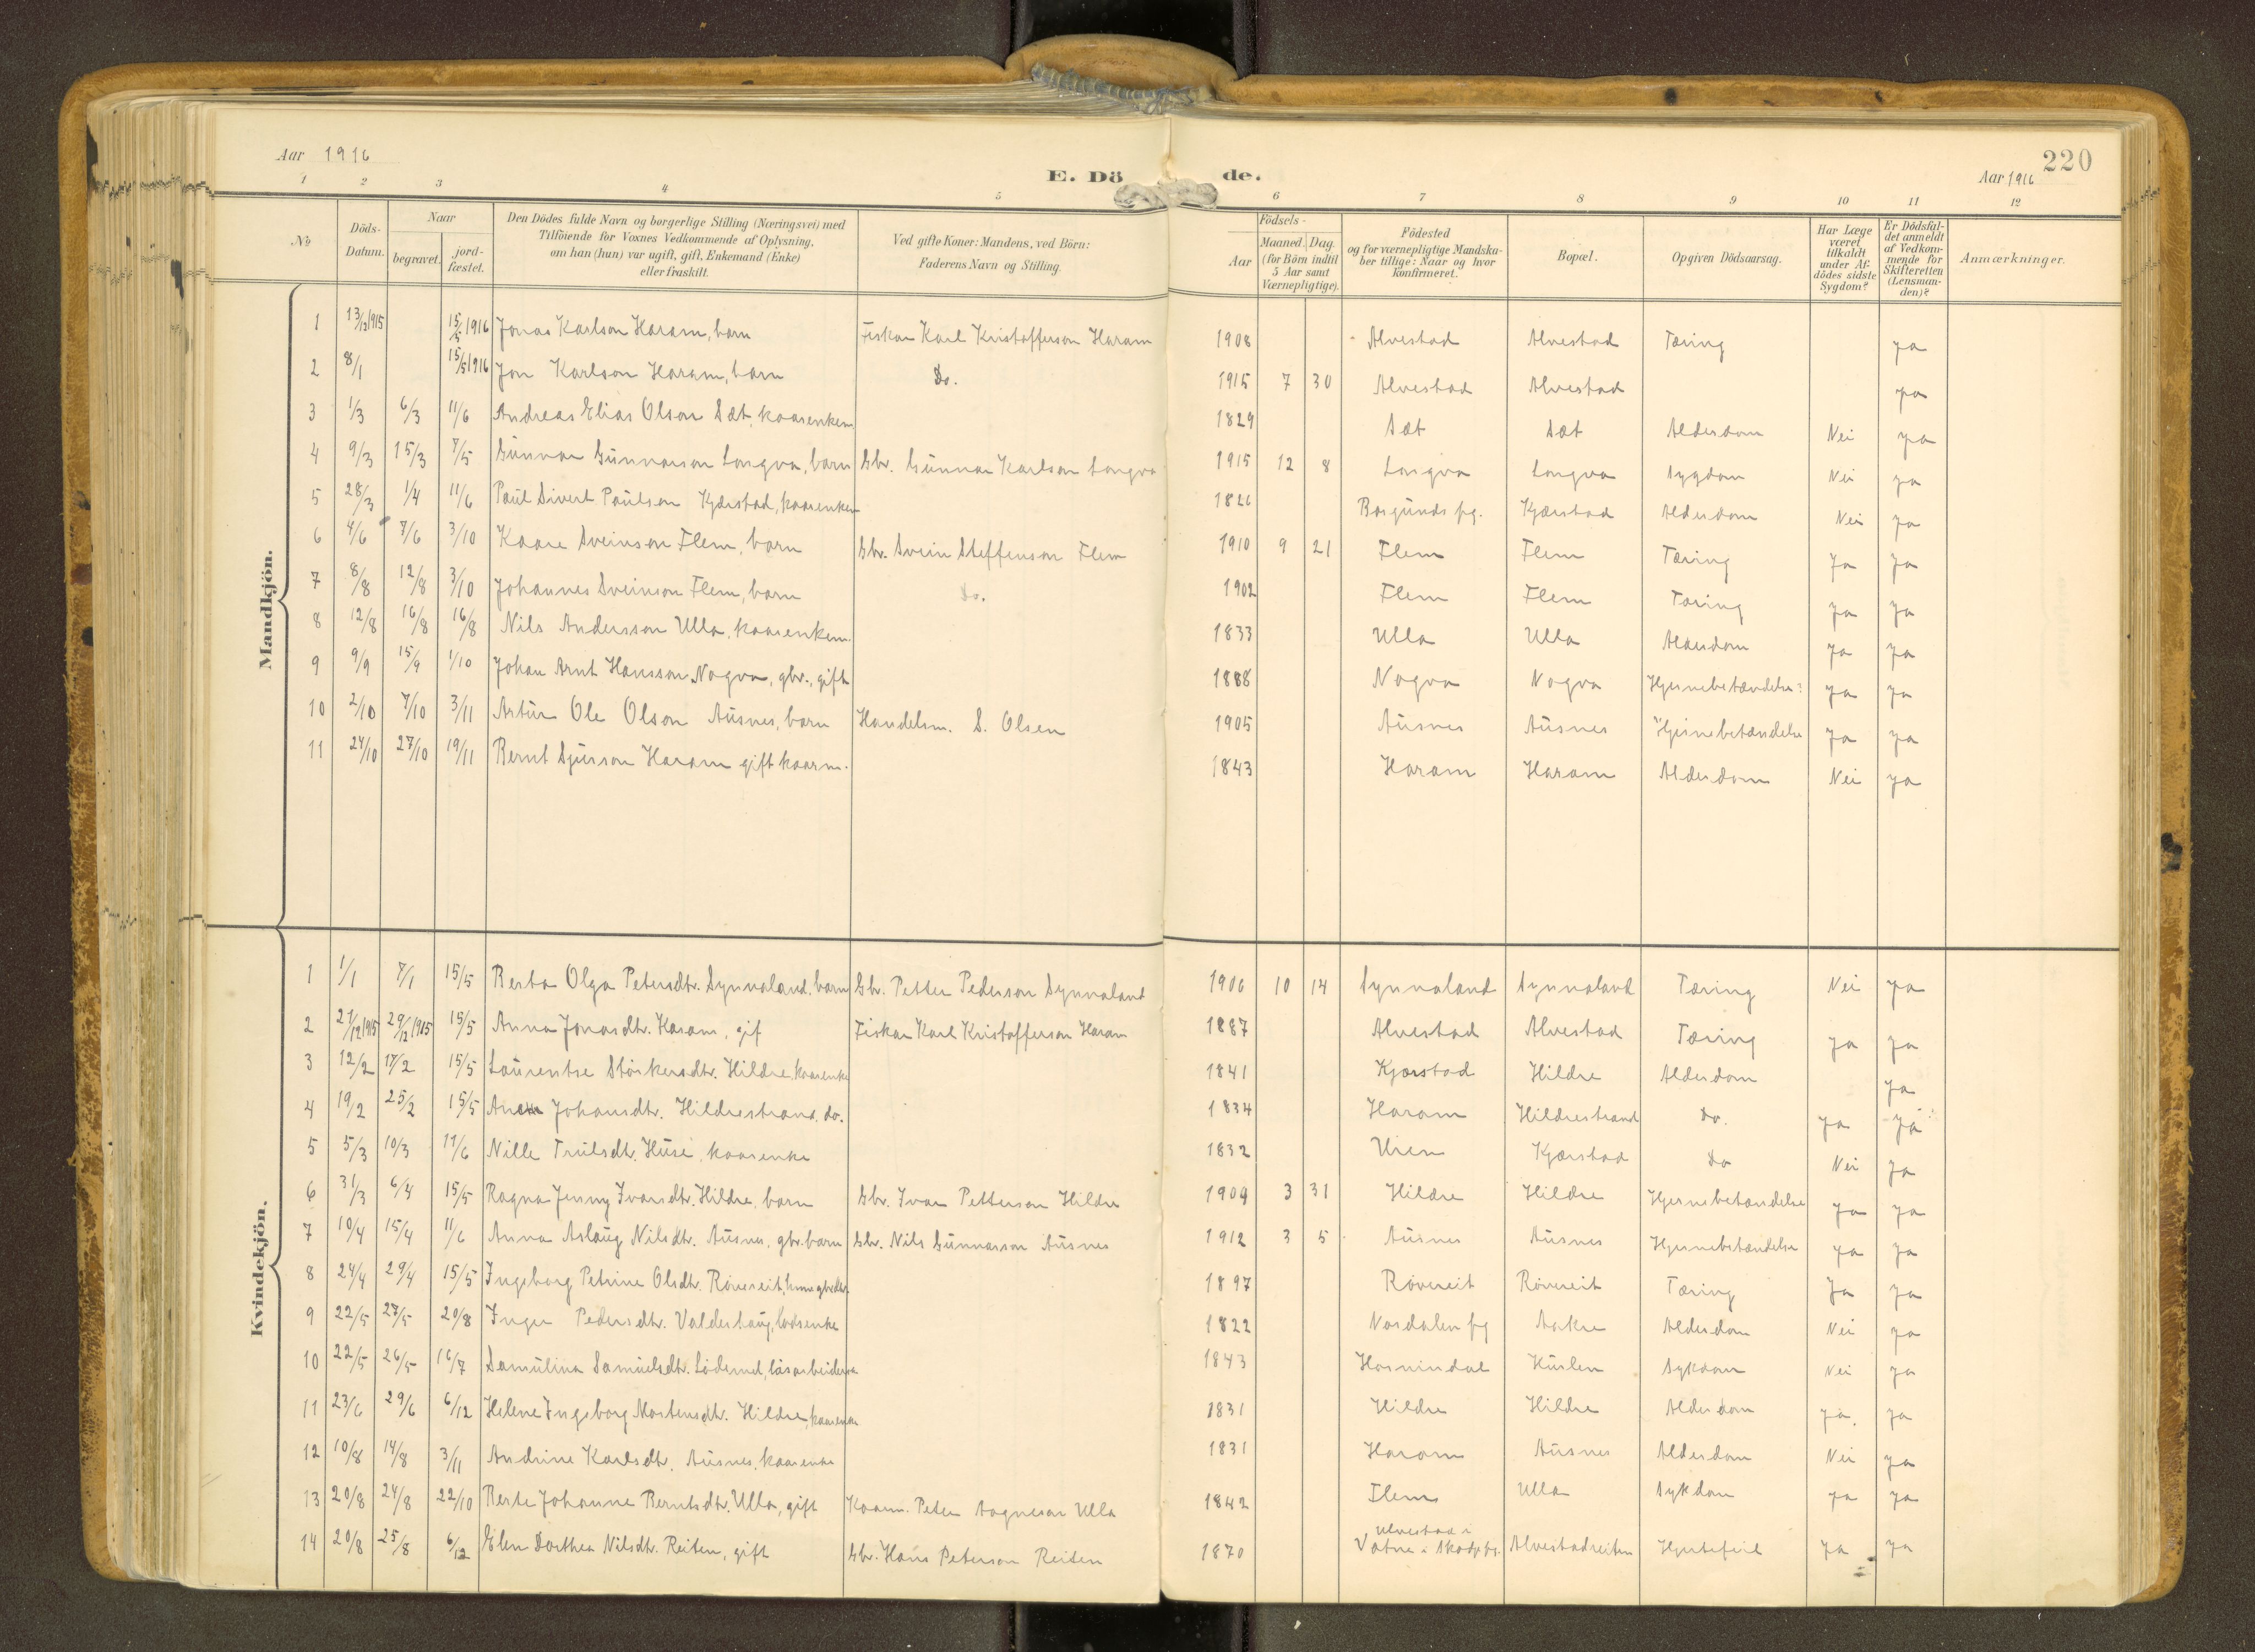 Aar 1916
E. Dö de.
Aar 1916
220
1 2 3 4 5 6 7 8 9 10 11 12
No
Döds-Datum.
Naar
begravet.
jord-fæstet.
Den Dödes fulde Navn og borgerlige Stilling (Næringsvei) med
Tilföiende for Voxnes Vedkommende af Oplysning,
om han (hun) var ugift, gift, Enkemand (Enke)
eller fraskilt.
Ved gifte Koner: Mandens, ved Börn:
Faderens Navn og Stilling.
Födsels-
Aar
Maaned. Dag.
(for Börn indtil
5 Aar samt
Værnepligtige).
Födested
og for værnepligtige Mandska-
ber tillige: Naar og hvor
Konfirmeret.
Bopæl.
Opgiven Dödsaarsag.
Har Læge
været
tilkaldt
under Af-
dödes sidste
Sygdom?
Er Dödsfal-
det anmeldt
af Vedkom-
mende for
Skifteretten
(Lensman-
den)?
Anmærkninger.
Mandkjön.
1 13/12 1915 15/5 1916 Jonas Karlson Haram, barn Fiskar Karl Kristofferson Haram 1908 Alvestad Alvestad Tæring ja
2 8/1 15/5 1916 Jon Karlson Haram, barn Do. 1915 7 30 Alvestad Alvestad ja
3 1/3 6/3 11/6 Andreas Elias Olson Sæt, kaarenkem. 1829 Sæt Sæt Alderdom Nei ja
4 9/3 15/3 7/5 Gunnar Gunnarson Longva, barn Gbr. Gunnar Karlson Longva 1915 12 8 Longva Longva Sygdom Nei ja
5 28/3 1/4 11/6 Paul Sivert Paulson Kjærstad, kaarenkem 1826 Borgunds pg. Kjærstad Alderdom Nei ja
6 4/6 7/6 3/10 Kaare Sveinson Flem, barn Gbr. Svein Steffenson Flem 1910 9 21 Flem Flem Tæring Ja ja
7 8/8 12/8 3/10 Johannes Sveinson Flem, barn Do. 1902 Flem Flem Tæring ja ja
8 12/8 16/8 16/8 Nils Andersson Ulla, kaarenkem. 1833 Ulla Ulla Alderdom ja ja
9 9/9 15/9 1/10 Johan Arnt Hansson Nogva, gbr., gift 1888 Nogva Nogva Hjernebetændelse? ja ja
10 2/10 7/10 3/11 Artur Ole Olson Ausnes, barn Handelsm. S. Olsen 1905 Ausnes Ausnes Hjernebetændelse ja ja
11 24/10 27/10 19/11 Bernt Sjurson Haram gift kaarm. 1843 Haram Haram Alderdom Nei ja
Kvindekjön.
1 1/1 7/1 15/5 Berta Olga Petersdtr. Synnaland, barn Gbr. Petter Pederson Synnaland 1906 10 14 Synnaland Synnaland Tæring Nei ja
2 21/12 1915 29/12 1915 15/5 Anna Jonasdtr. Haram, gif Fiskar Karl Kristofferson Haram 1887 Alvestad Alvestad Tæring ja ja
3 12/2 17/2 15/5 Laurentse Störkersdtr. Hildre, kaarenke 1841 Kjærstad Hildre Alderdom ja
4 19/2 25/2 15/5 Johansdtr. Hildrestrand, do. 1834 Haram Hildrestrand Do. ja ja
5 5/3 10/3 11/6 Nille Trulsdtr. Huse, kaarenke 1832 Uren Kjærstad Do Nei ja
6 31/3 6/4 15/5 Ragna Jenny Ivarsdtr. Hildre, barn Gbr. Ivar Petterson Hildre 1909 3 31 Hildre Hildre Hjernebetændelse ja ja
7 10/4 15/4 11/6 Anna Aslaug Nilsdtr. Ausnes, gbr. barn Gbr. Nils Gunnarson Ausnes 1912 3 5 Ausnes Ausnes Hjernebetændelse ja ja
8 24/4 29/4 15/5 Ingeborg Petrine Olsdtr. Rövereit, 1897 Rövereit Rövereit Tæring Ja ja
9 22/5 27/5 20/8 Inger Pedersdtr. Valderhaug, losenke 1822 Nordalen pg Aakre Alderdom Nei ja
10 22/5 26/5 16/7 Samulina Samuelsdtr. Södernes, 1843 Hornindal Hurlen Sykdom Nei ja
11 23/6 29/6 6/12 Helene Ingeborg Mortensdtr. Hildre, kaarenke 1831 Hildre Hildre Alderdom ja. ja
12 10/8 14/8 3/11 Andrine Karlsdtr. Ausnes, kaarenke 1831 Haram Ausnes Alderdom Nei ja
13 20/8 24/8 22/10 Berte Johanne Berntsdtr. Ulla, gift Kaarm. Peter Aagneson Ulla 1842 Flem Ulla Sykdom ja ja
14 20/8 25/8 6/12 Elen Dorthea Nilsdtr. Reiten, gift Gbr. Hans Peterson Reiten 1870 Ulvestad i Vatne i Skodje pg. Alvestadreiten Hjertefeil Ja ja